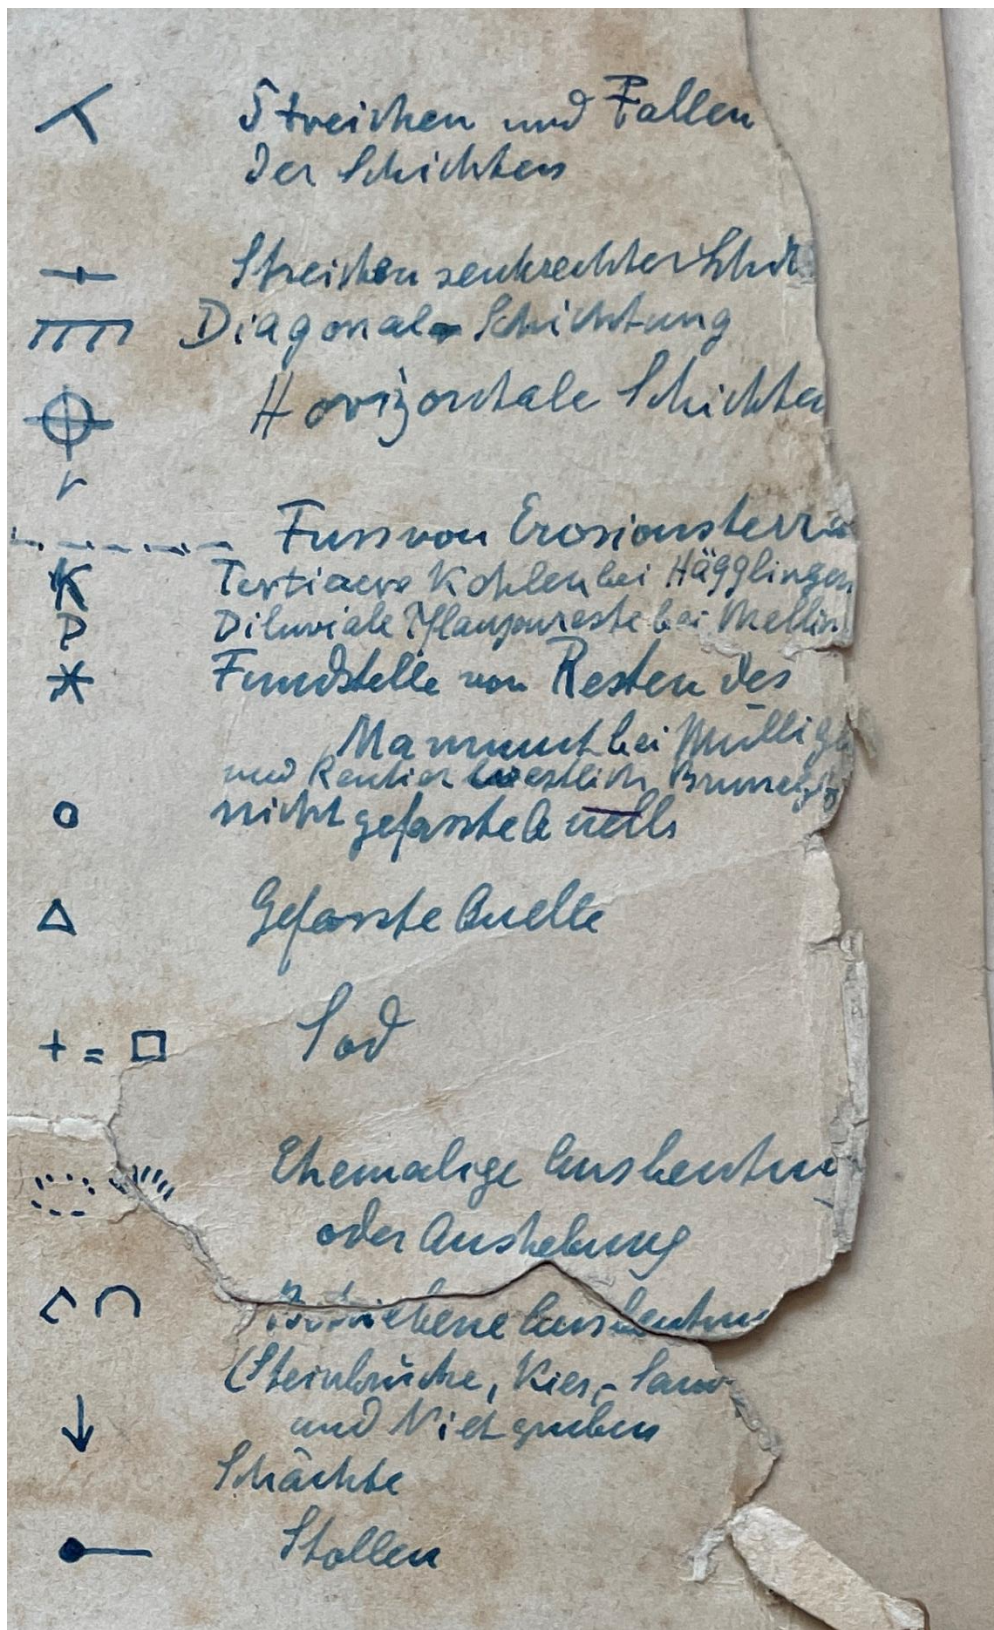 Streichen und Fallen
der Schichten
Streichen senkrechter
Diagonal- Schichtung
Horizontale Schichten
r
Fuss von Erosionsterra
K Tertiaere Kohlen bei Hägglingen
P Diluviale Pflanzenreste bei Mellin
Fundstelle von Resten des
Mammut bei Mülligen
und Rentier westlich Brunegg
nicht gefasste Quelle
Gefasste Quelle
+ = □ Sod
Ehemalige Ausbeutun
oder Aushebung
Betriebene Ausbeutung
(Steinbrüche, Kies,- Sand
und gruben
Schächte
Stollen